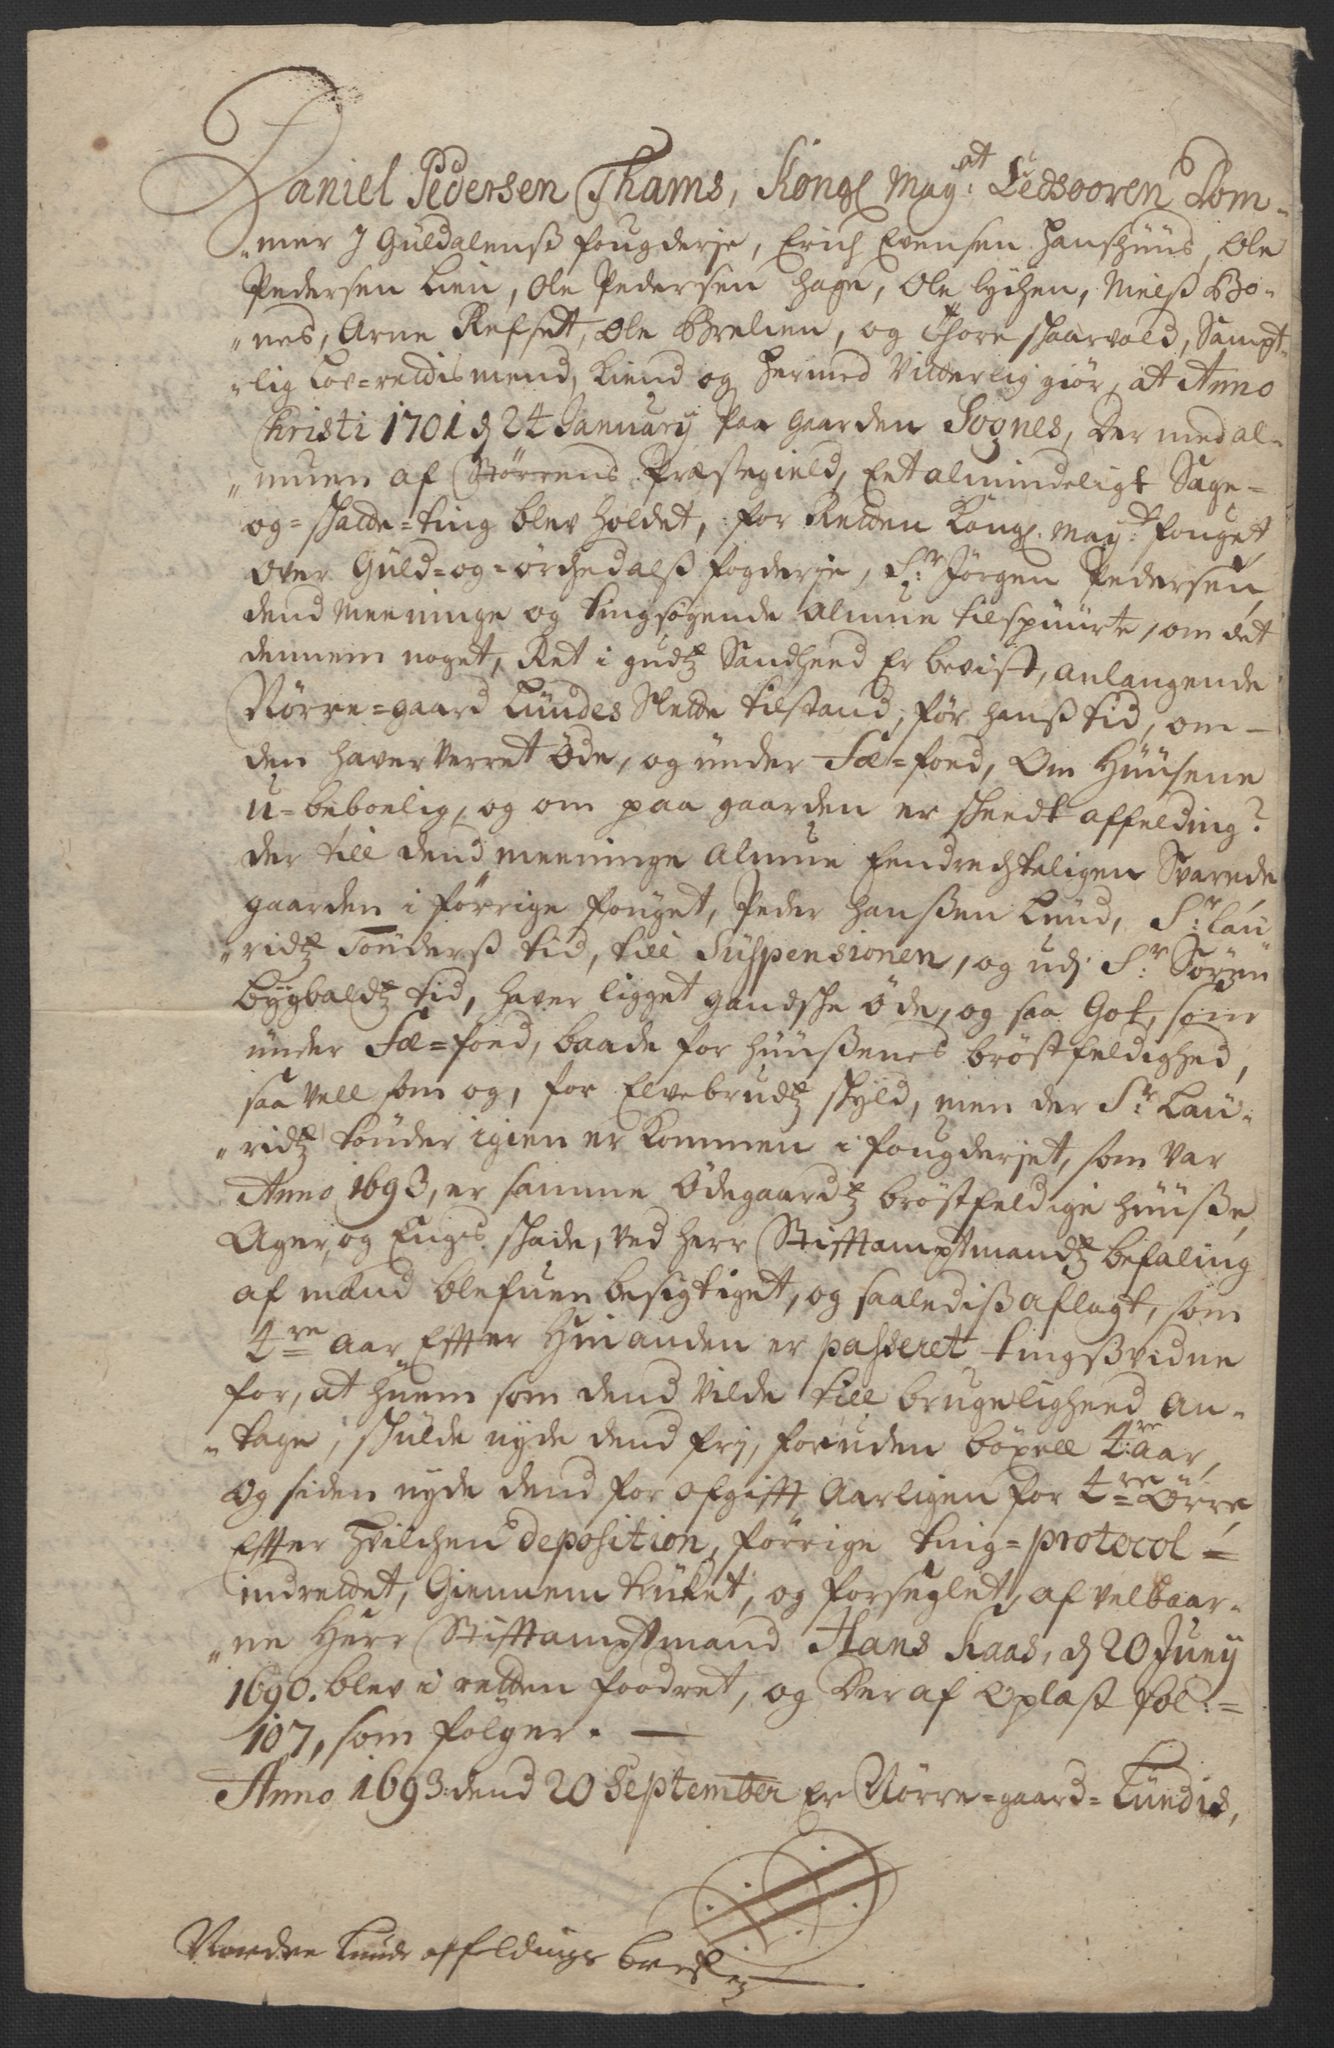 Daniel Pedersen Thams, Kongl May:at Eedsvoren Dom-
"mer J Guldalens fougderje, Erich Evensen Hanshuus, Ole
Pedersen Lien, Ole Pedersen Hage, Ole lychen, Nielß Bo-
"nes, Arne Refsett, Ole Brelien, og Thore skaarvold, Sampt-
"lig Lov-rettismend, kiend og hermed Vitterlig giör, at Anno
Christi 1701 d 24 January paa gaarden Sognes, Der med al-
"muen af Störrens Præstegield, Eet almindeligt Sage-
og-skatte-ting blev holdet, for Retten Kongl. May:ts fouget
over Guld-og-örchedalß fogderje, Sr: Jörgen Pedersen
dend meninge og tingsögende almue tilspuurte, om det
dennem noget, Ret i gudtz Sandheed Er bevist, anlangende
Nörre-gaard Lundes Slette tilstand, för hanß tid, om-
den haver verret Öde, og under Fæ-foed, Om Huusene
u-beboelig, og om paa gaarden er skeedt affelding?
der till dend meeninge almue Eendrechteligen Svarede
gaarden i förrige fouget, Peder Hanßen Lund, Sr: Lau
"ridtz Tönderß tid, till Suspensionen, og udj Sr: Sören
Bygbaldtz tid, haver ligget gandske öde, og saa Got, som
under Fæ-foed, baade for huußenes bröstfeldighed,
saa vell som og, for Elvebrudtz skyld, men der Sr: Lau-
"ridtz Tönder igien er kommen i fougderjet, som var
Anno 1693, er samme Ödegaardtz bröstfeldige huuße,
Ager, og Engis skade, ved Herr Stifftamptmandtz befaling
af mænd blefuen besigtiget, og saaledis aflagt, som
4re aar Effter hinanden er passeret tingßvidne
for, at huem som dend vilde till brugeligheed an-
"tage, skulde nyde dend frj, foruden böxell 4re aar,
og siden nyde dend for afgifft Aarligen for 4re Örre,
Effter hvilchen deposition, förrige ting-protocol-
indrettet, Giennem trucket, og forseglet, af velbaar-
"ne Herr Stifftamptmand Hans Kaas, d 20 Juny
1690. blev i retten foodret, og der af oplæst fol:-
107, som fölger. —
Anno 1693 dend 20 September Er Nörre-gaard-Lundis,
Nordre Lunds affeldings breff